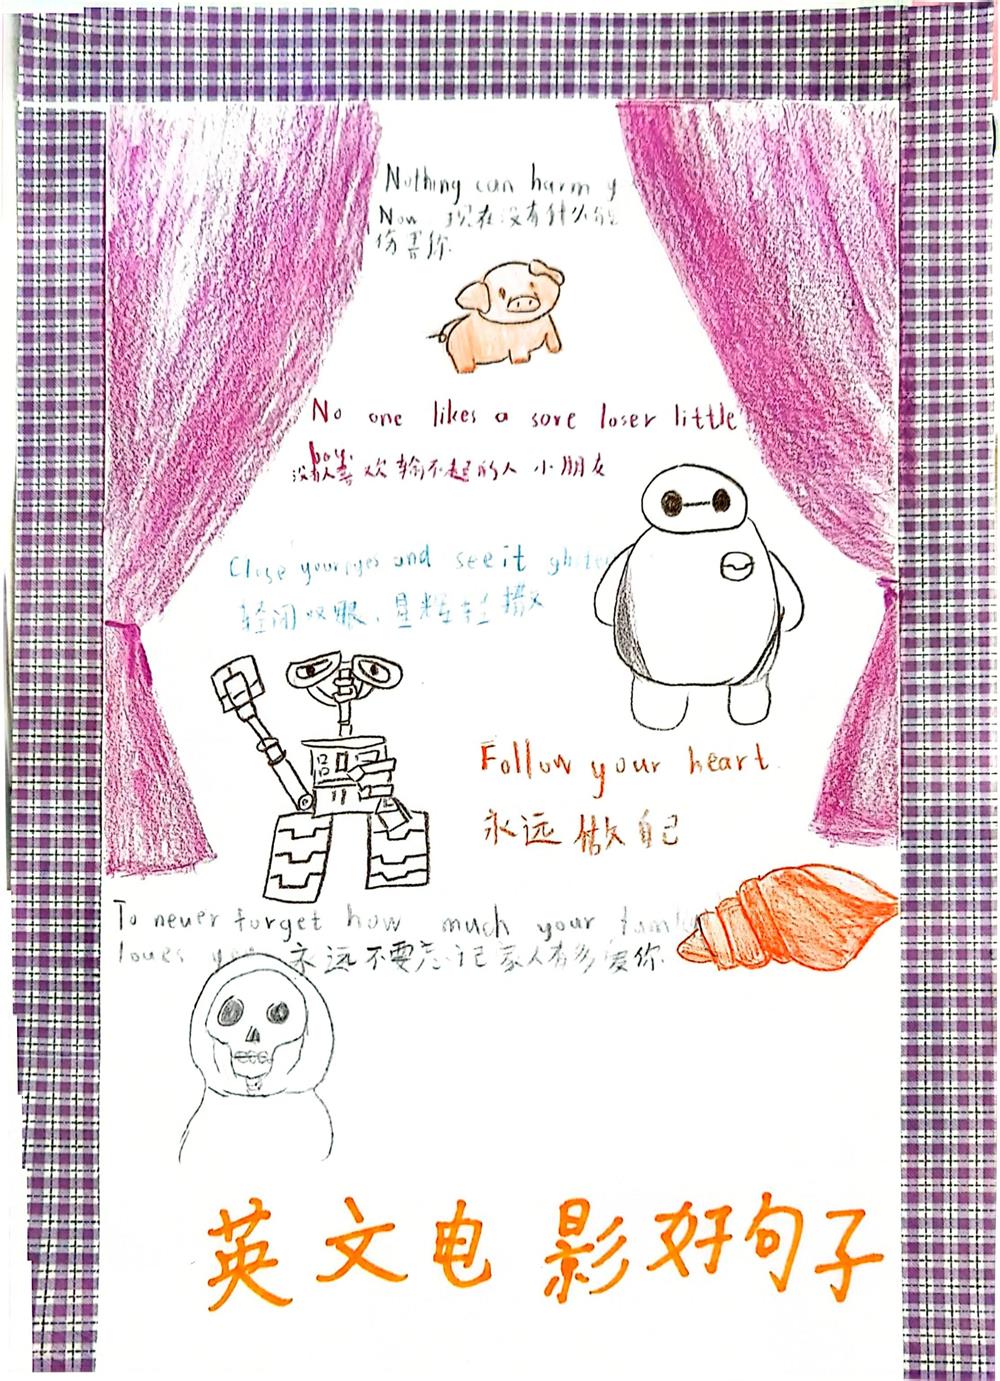 Nothing can harm y
Now 现在没有什么能
伤害你
No one likes a sore loser little
boy.
没有人喜欢输不起的人 小朋友
Close your eyes and see it glister
轻闭双眼，星辉轻撒
Follow your heart.
永远做自己
To never forget how much your family
loves you 永远不要忘记家人有多爱你.
英文电影好句子